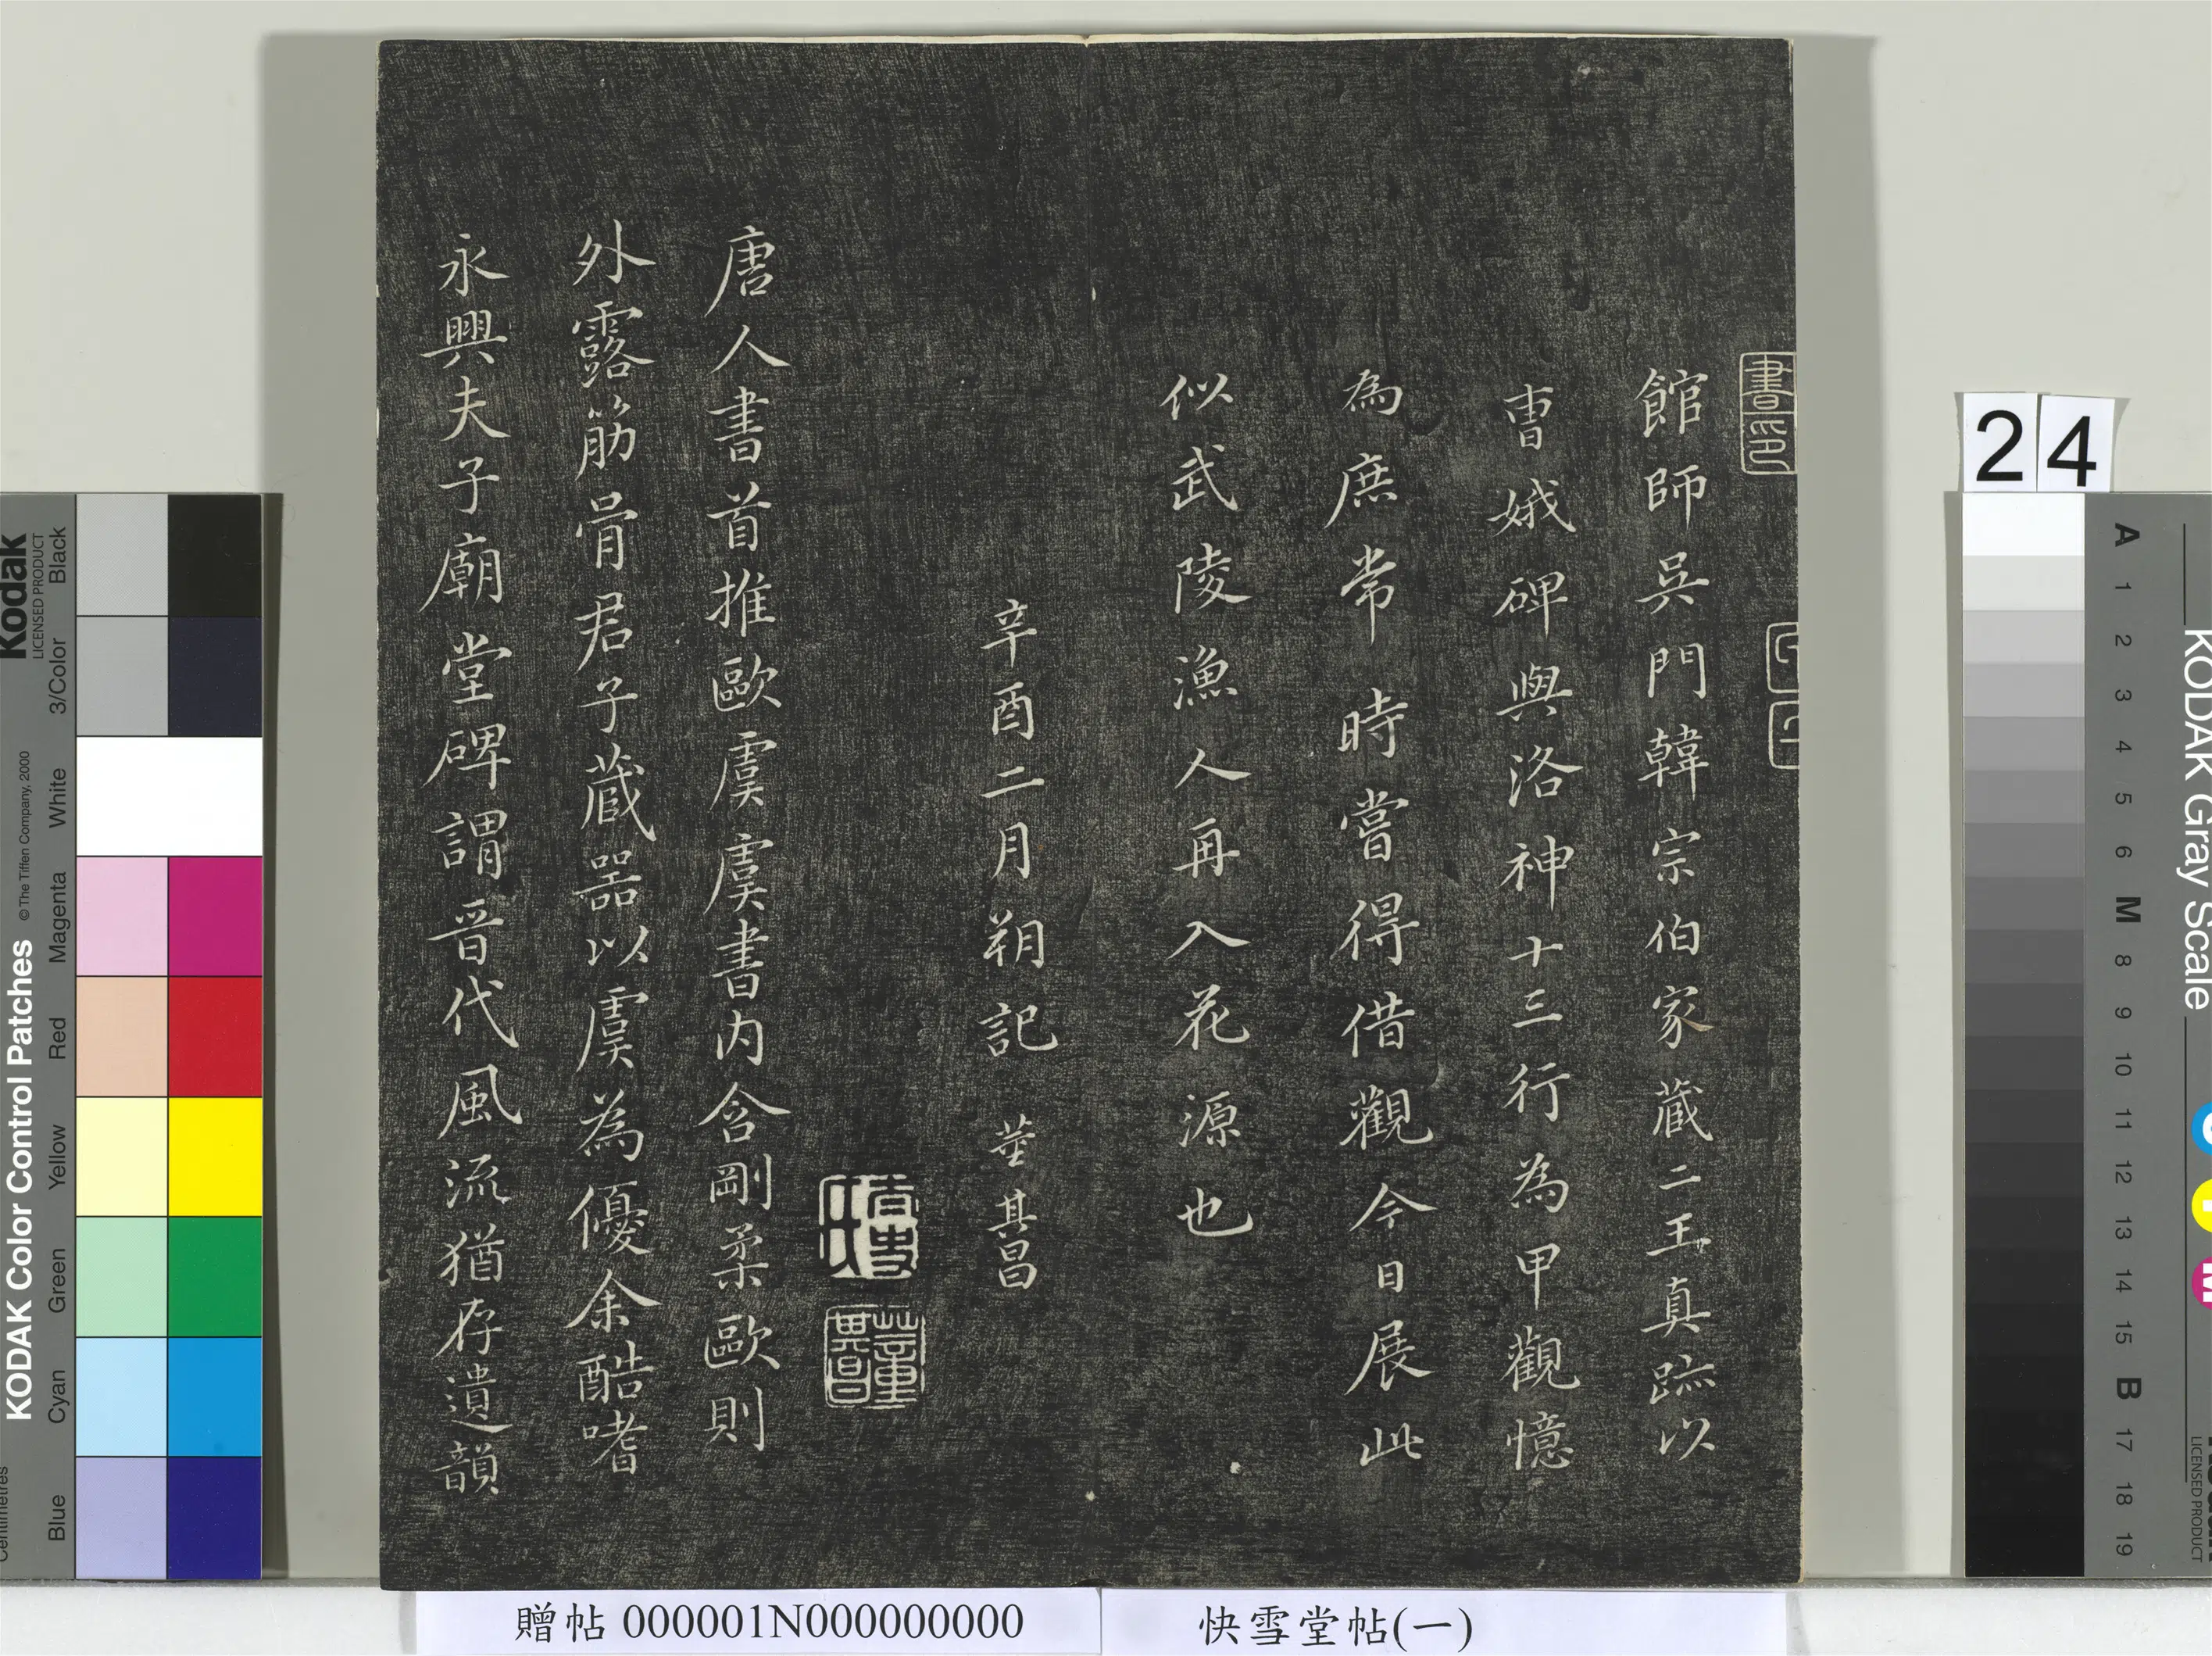 書印
館師吳門韓宗伯家藏二王真跡以
曹娥碑與洛神十三行為甲觀憶
為庶常時嘗得借觀今日展此
似武陵漁人再入花源也
辛酉二月朔記 董其昌
董其昌
唐人書首推歐虞虞書內含剛柔歐則
外露筋骨君子藏器以虞為優余酷嗜
永興夫子廟堂碑謂晉代風流猶存遺韻
贈帖 000001N000000000
快雪堂帖(一)
24
KODAK Color Control Patches
© The Tiffen Company, 2000
Kodak
LICENSED PRODUCT
Blue
Cyan
Green
Yellow
Red
Magenta
White
3/Color
Black
Centimetres
KODAK Gray Scale
LICENSED PRODUCT
A 1 2 3 4 5 6 M 8 9 10 11 12 13 14 15 B 17 18 19
C
Y
M